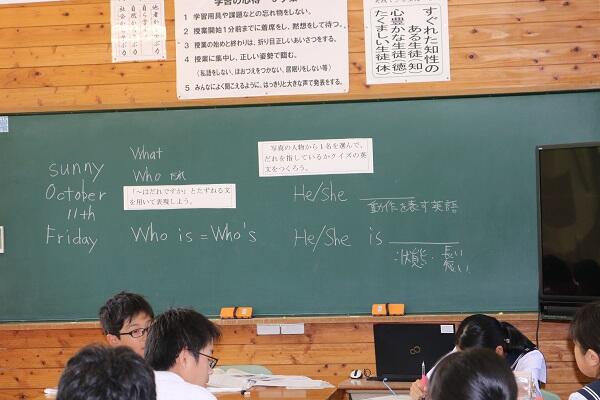 学習の心得
1 学習用具や課題などの忘れ物をしない。
2 授業開始1分前までに着席をし、黙想をして待つ。
3 授業の始めと終わりは、折り目正しいあいさつをする。
4 授業に集中し、正しい姿勢で臨む。
(私語をしない、ほおづえをつかない、居眠りをしない等)
5 みんなによく聞こえるように、はっきりと大きな声で発表をする。
すぐれた知性の
ある生徒(知)
心豊かな生徒(徳)
たくましい生徒(体)
sunny
October
11th
Friday
What
Who だれ
「~はだれですか」とたずねる文
を用いて表現しよう。
Who is = Who's
写真の人物から1名を選んで、
だれを指しているかクイズの英
文をつくろう。
He/She
動作を表す英語
He/She is
状態・長い
短い